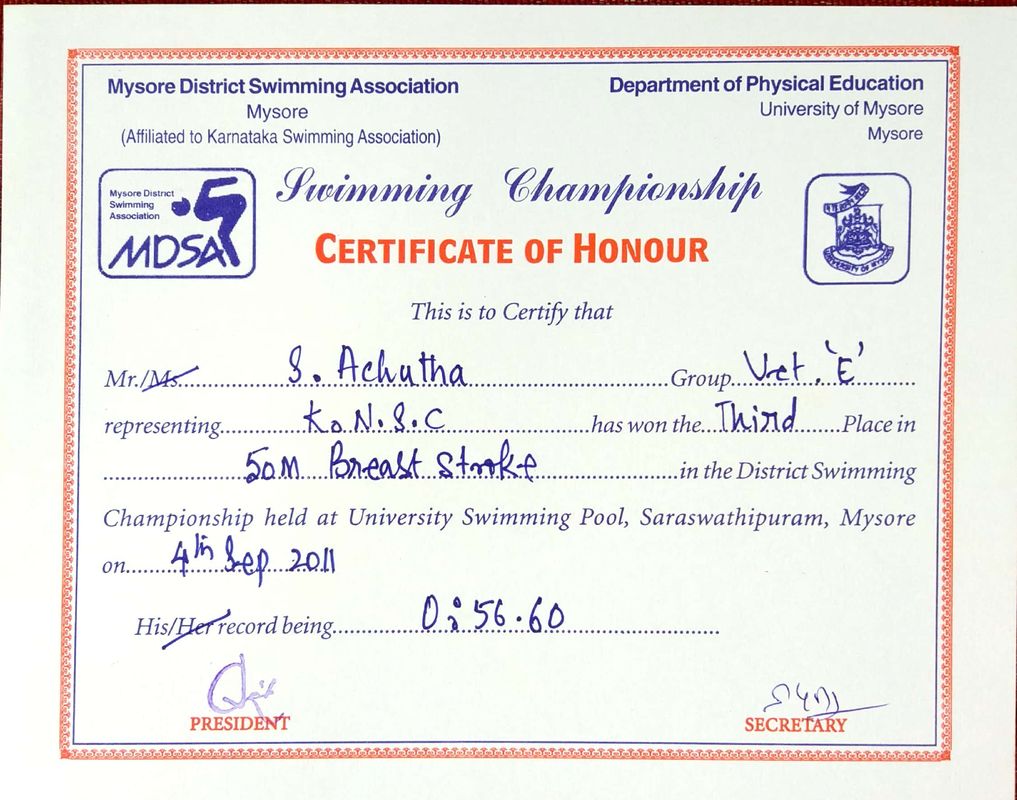 Mysore District Swimming Association
Mysore
(Affiliated to Karnataka Swimming Association)
Department of Physical Education
University of Mysore
Mysore
Mysore District
Swimming
Association
MDSA
Swimming Championship
UNIVERSITY OF MYSORE
CERTIFICATE OF HONOUR
This is to Certify that
Mr./Ms. S. Achutha Group Vet. 'E'
representing K.N.S.C has won the Third Place in
50M Breast Stroke in the District Swimming
Championship held at University Swimming Pool, Saraswathipuram, Mysore
on 4th Sep 2011
His/Her record being 0:56.60
PRESIDENT
SECRETARY